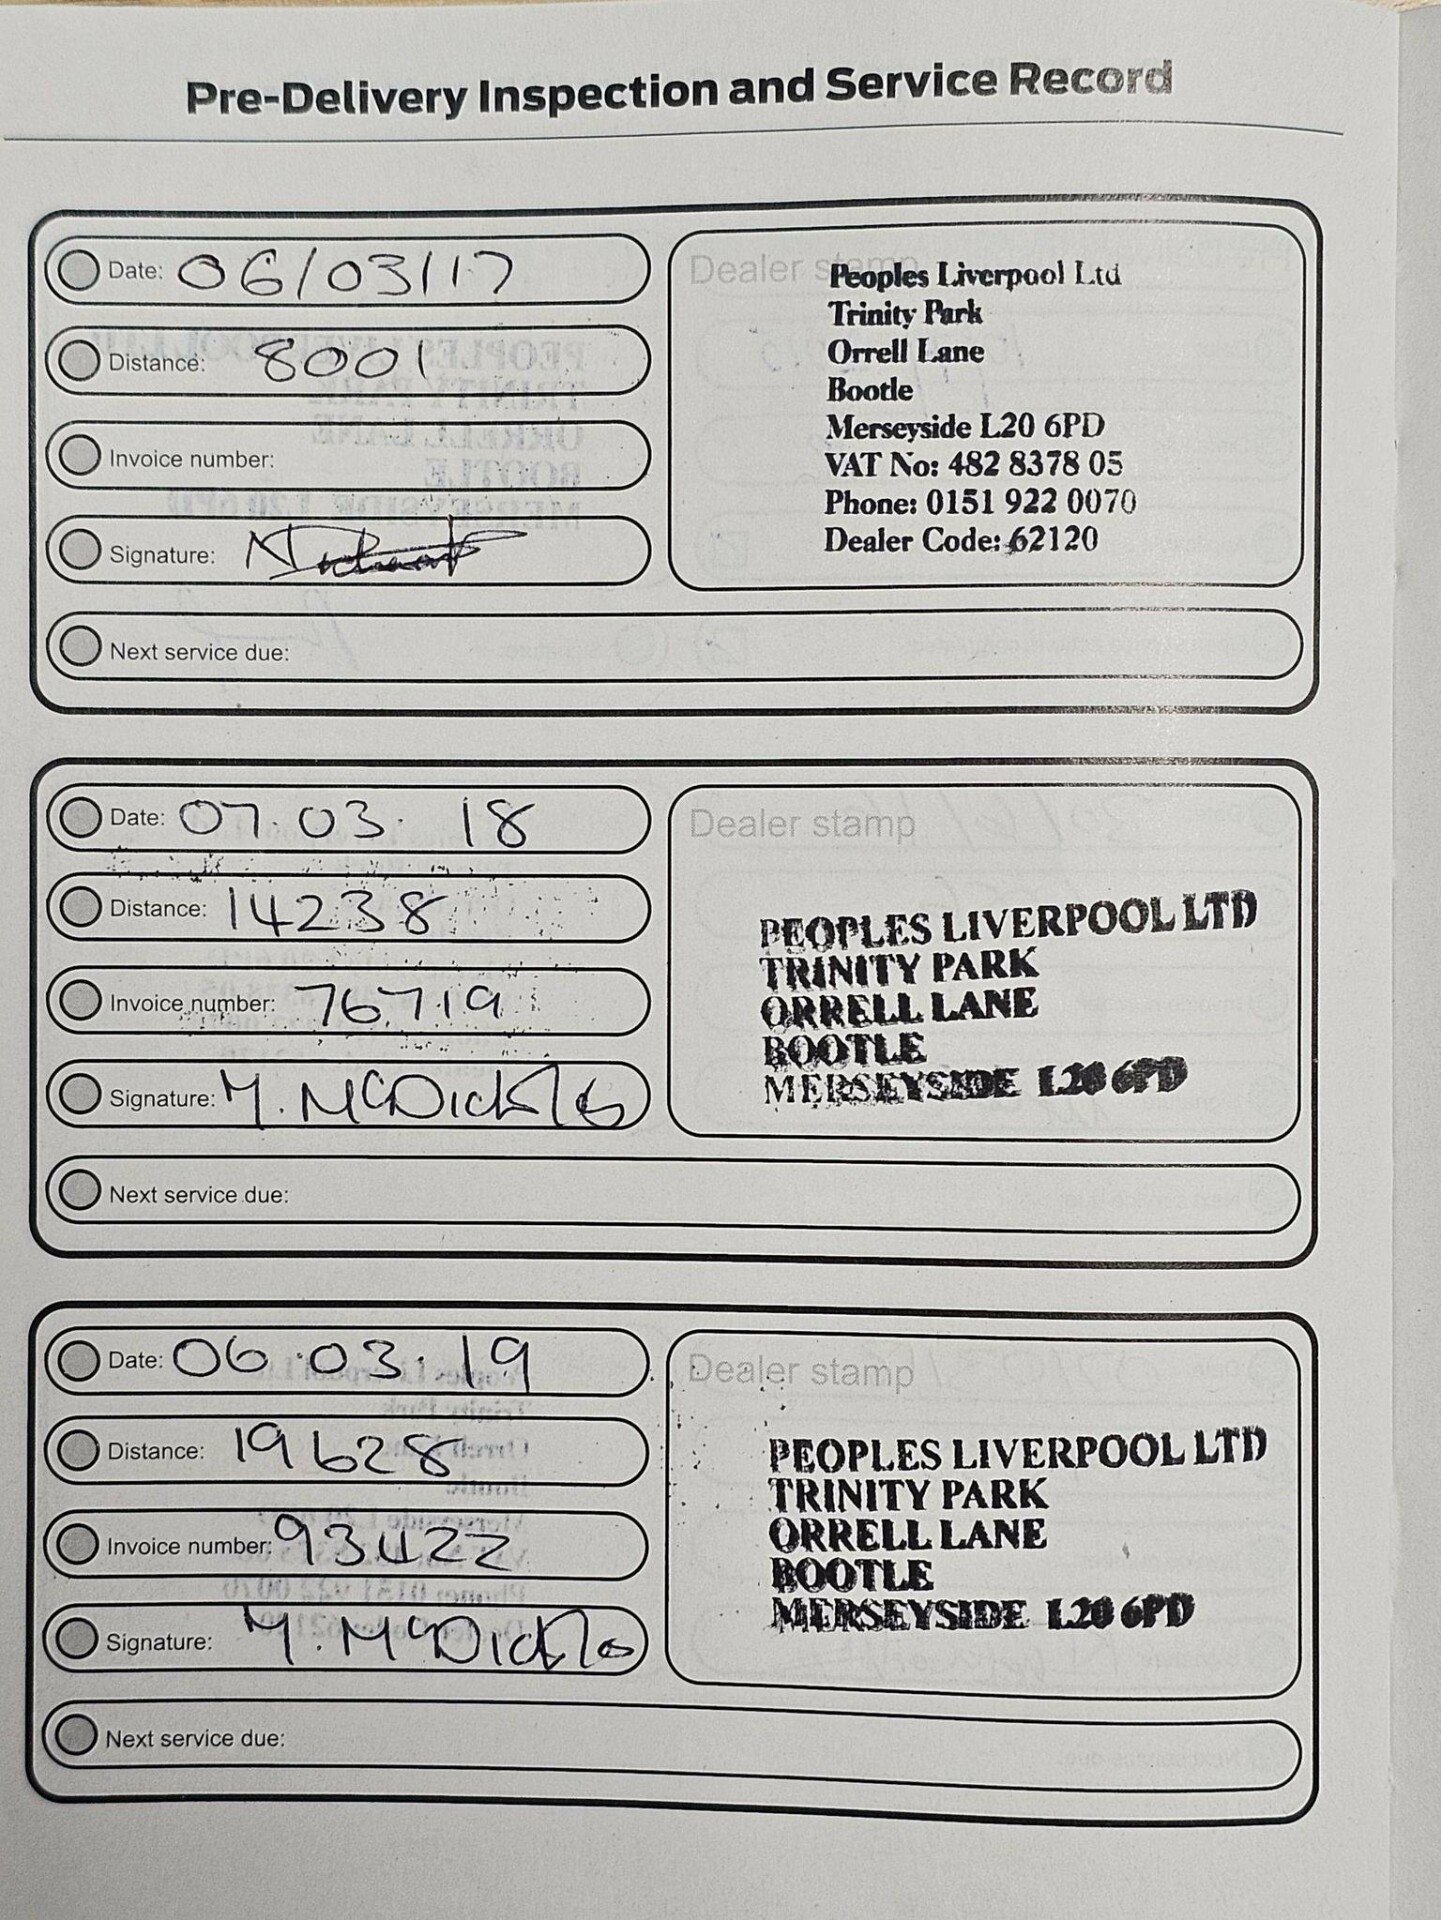 Pre-Delivery Inspection and Service Record
Date: 06/03/17
Distance: 8001
Invoice number:
Signature:
Next service due:
Dealer stamp
Peoples Liverpool Ltd
Trinity Park
Orrell Lane
Bootle
Merseyside L20 6PD
VAT No: 482 8378 05
Phone: 0151 922 0070
Dealer Code: 62120
Date: 07.03.18
Distance: 14238
Invoice number: 76719
Signature: M. McDickle
Next service due:
Dealer stamp
PEOPLES LIVERPOOL LTD
TRINITY PARK
ORRELL LANE
BOOTLE
MERSEYSIDE L20 6PD
Date: 06.03.19
Distance: 19628
Invoice number: 93422
Signature: M. McDickle
Next service due:
Dealer stamp
PEOPLES LIVERPOOL LTD
TRINITY PARK
ORRELL LANE
BOOTLE
MERSEYSIDE L20 6PD